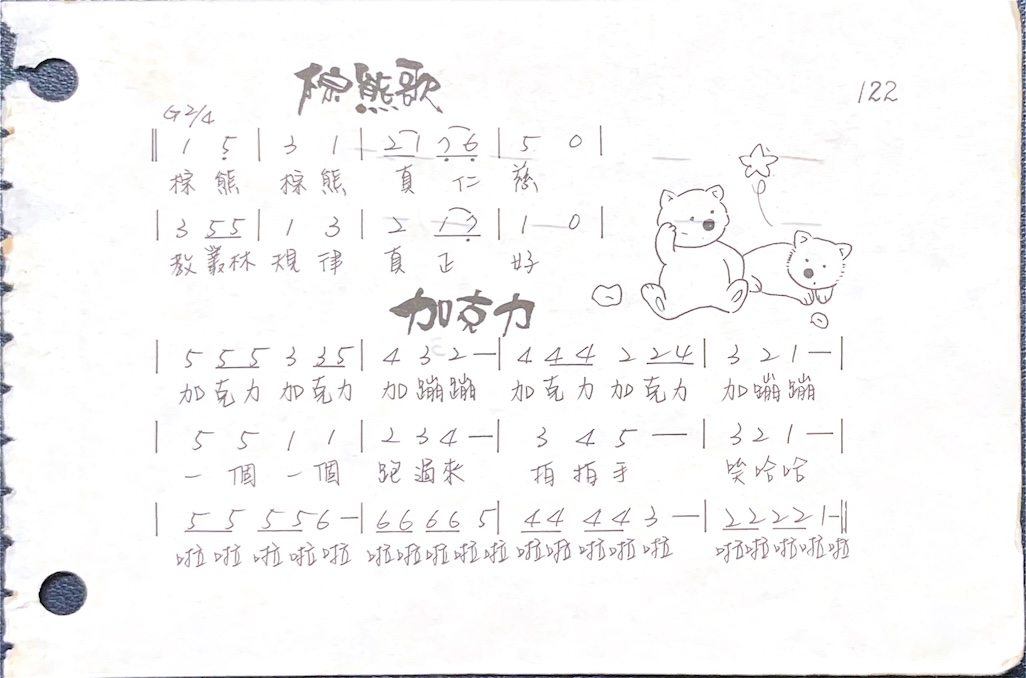 棕熊歌
122
G2/4
‖ 1 5̣ | 3 1 | 2 1 7̣ 6̣ | 5 0 |
棕 熊 棕 熊 真 仁 慈
| 3 5 5 | 1 3 | 2 1 7̣ | 1 0 |
教 叢林 規 律 真 正 好
加克力
| 5 5 5 3 3 5 | 4 3 2 — | 4 4 4 2 2 4 | 3 2 1 — |
加克力 加克力 加蹦蹦 加克力 加克力 加蹦蹦
| 5 5 1 1 | 2 3 4 — | 3 4 5 — | 3 2 1 — |
一個 一個 跑過來 拍拍手 笑哈哈
| 5 5 5 5 6 — | 6 6 6 6 5 | 4 4 4 4 3 — | 2 2 2 2 1 — ‖
啦啦 啦啦啦 啦啦啦啦啦 啦啦 啦啦啦 啦啦啦啦啦